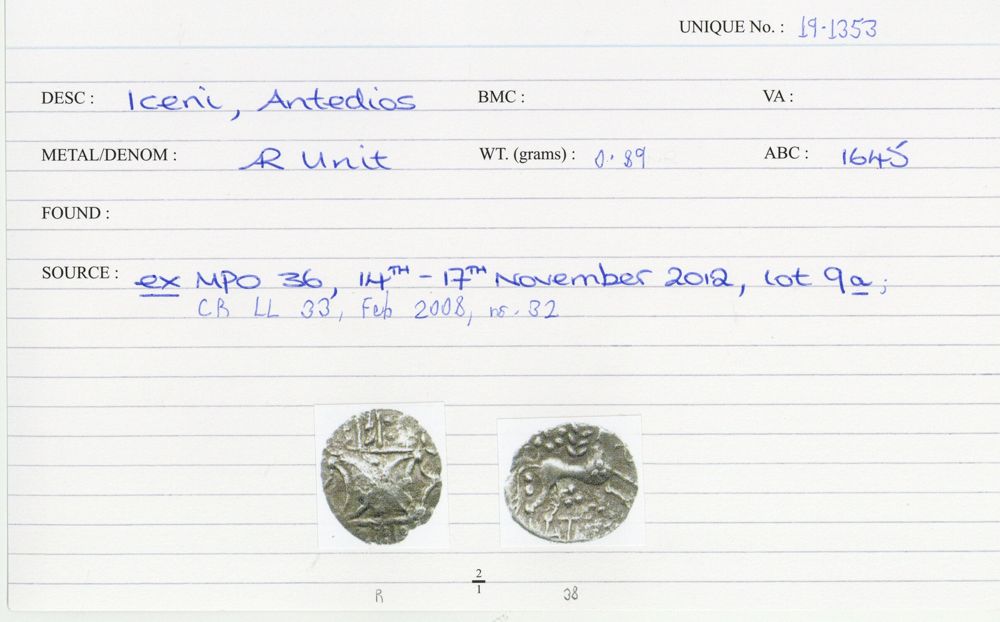 UNIQUE No. : 19-1353
DESC : Iceni, Antedios BMC : VA :
METAL/DENOM : AR Unit WT. (grams) : 0.89 ABC : 1645
FOUND :
SOURCE : ex MPO 36, 14TH - 17TH November 2012, lot 9a;
CR LL 33, Feb 2008, no. 32
2
1
R 38